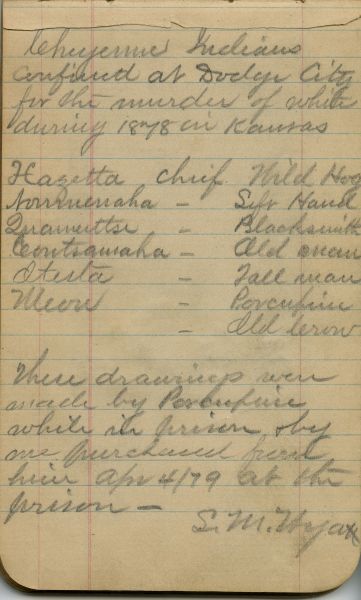 Cheyenne Indians
confined at Dodge City
for the murder of white
during 1878 in Kansas
Hazetta chief Wild Hog
Nommenaha - Left Hand
Quamettse - Blacksmith
- Old man
Itesta - Tall man
Meow - Porcupine
- Old Crow
These drawings were
made by Porcupine
while in prison & by
me purchased from
him Apr 4/79 at the
prison -
S. M. Hyatt